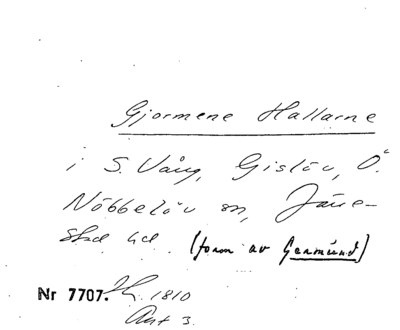 Gjormene Hallarne
i S. Vång, Gislöv, Ö.
Nöbbelöv sn, Järre-
stad hd. (form av Germund)
Nr 7707. 1810
Avt 3.